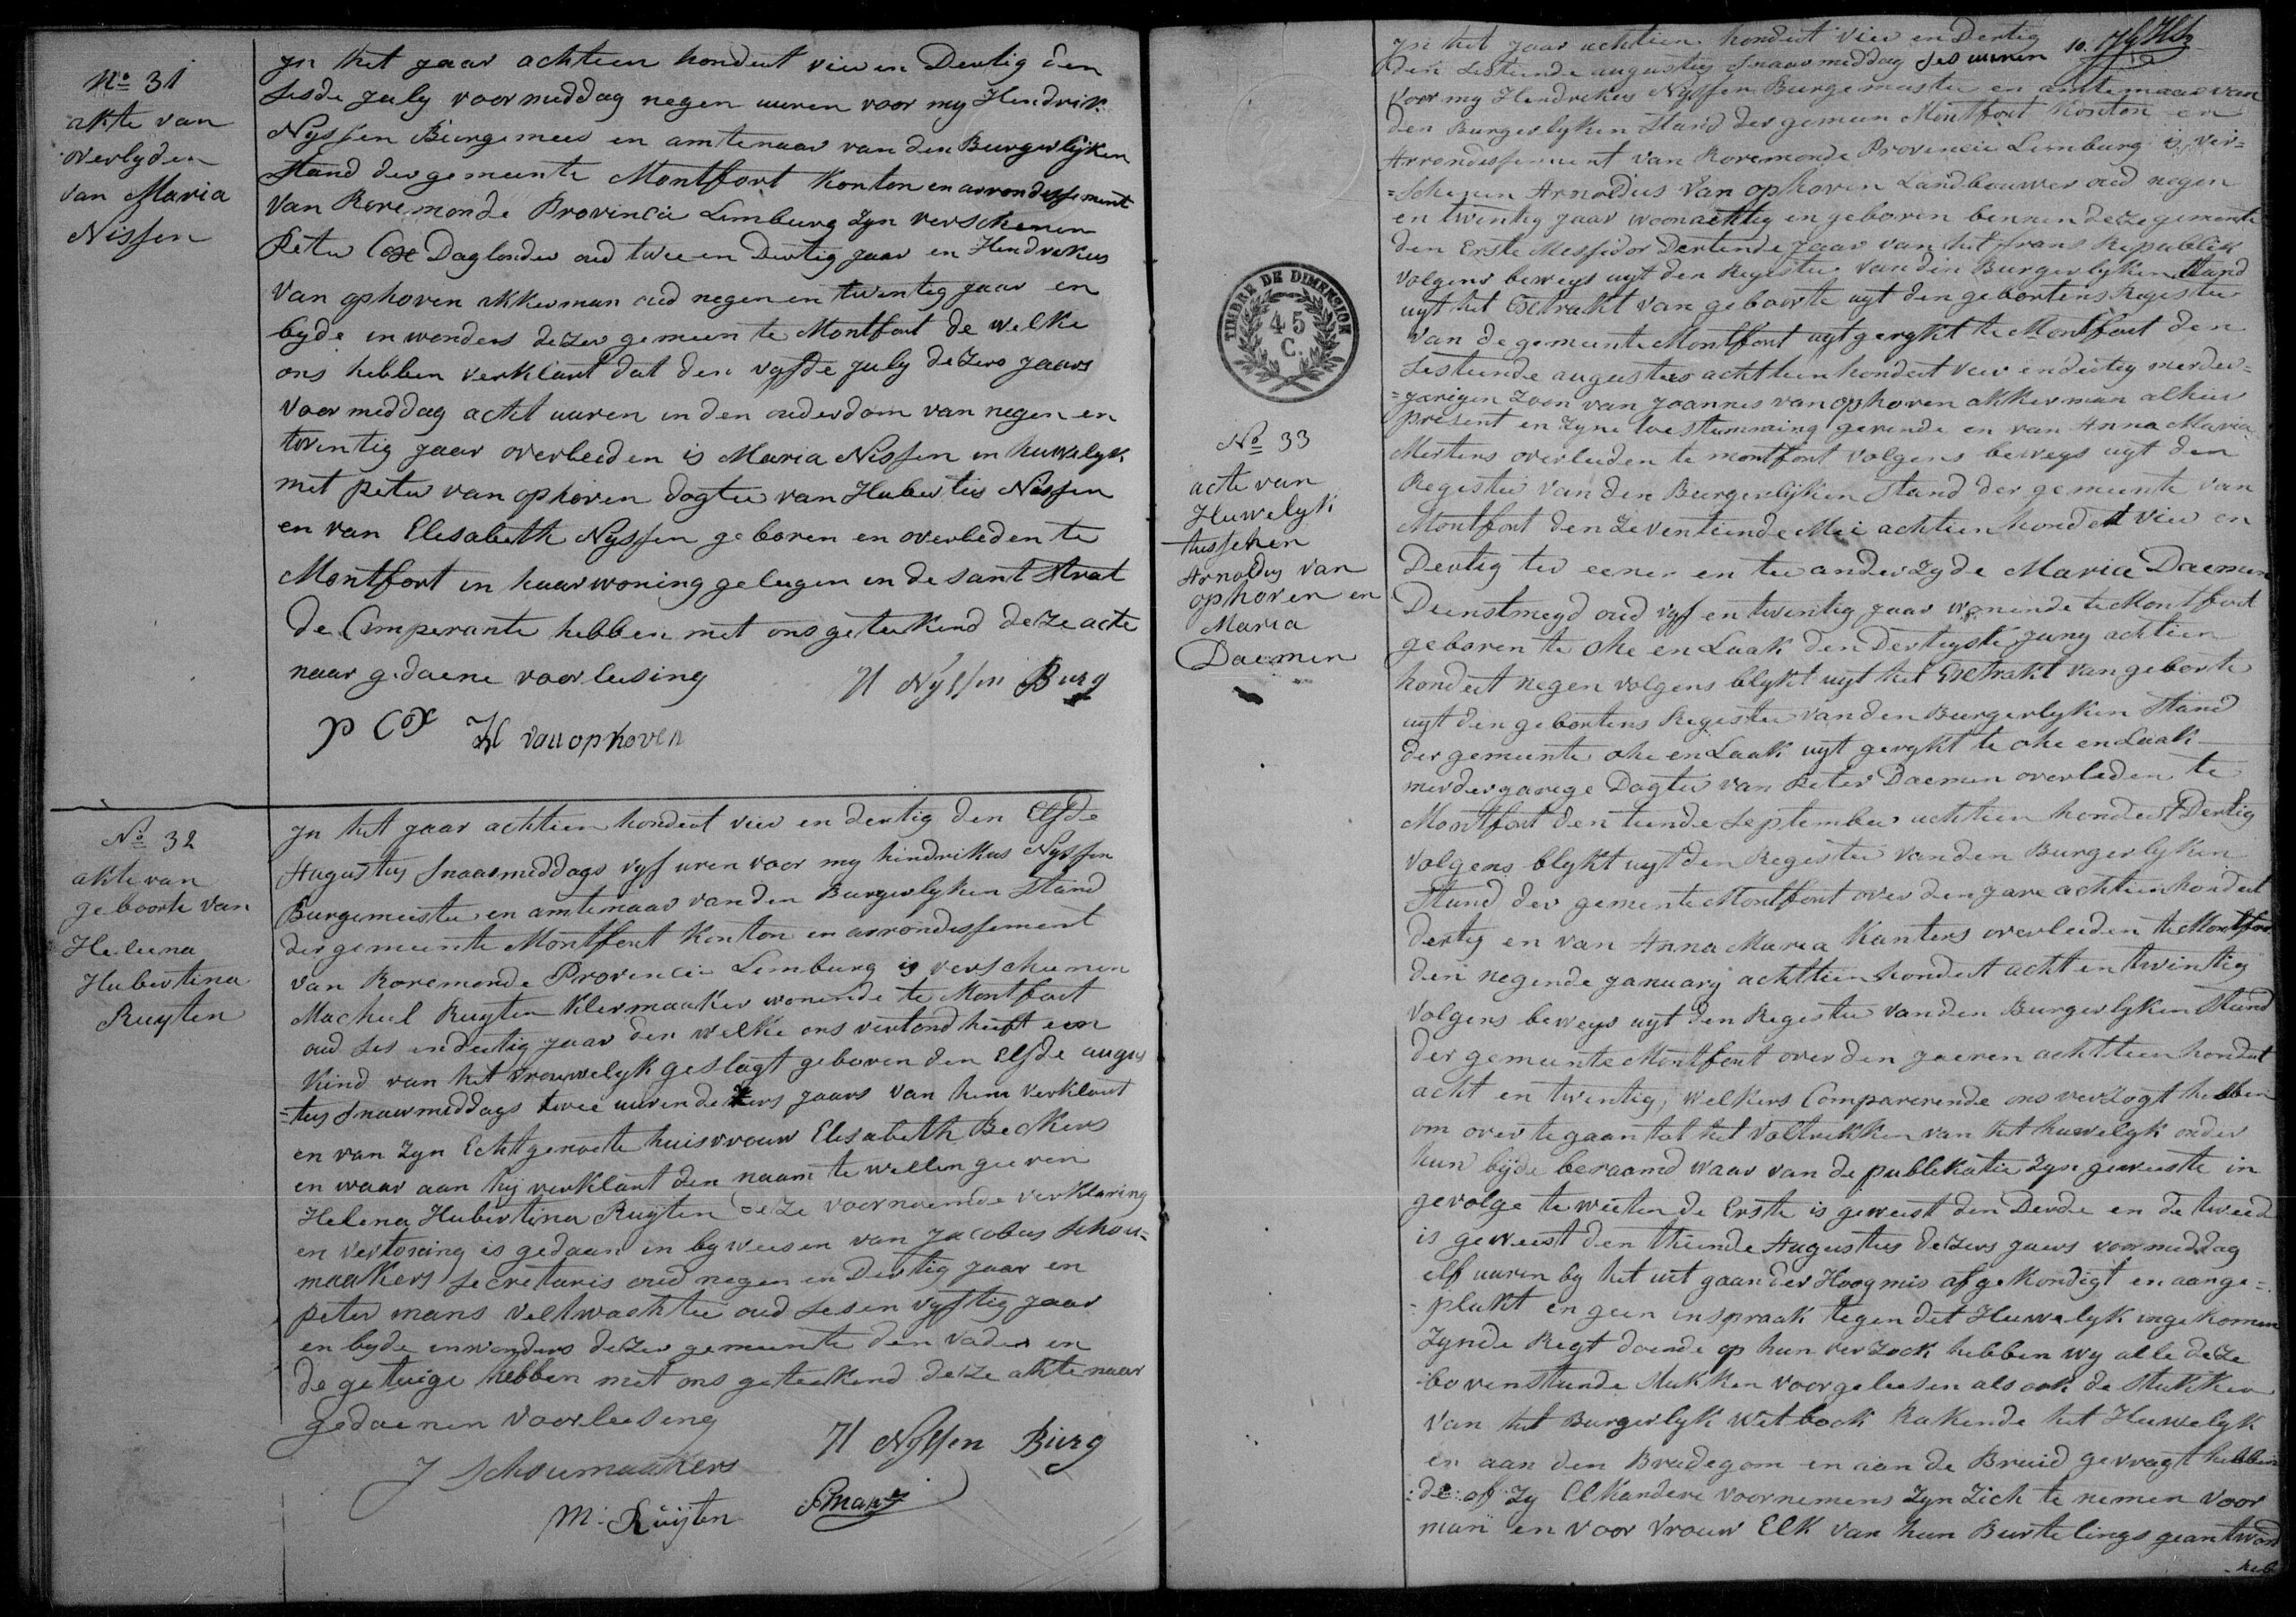 No 31
akte van
overlyden
van Maria
Nissen
Jn het jaar achtien hondert vier en Dertig den
sesde July voormiddag negen uuren voor my Hendrik
Nyssen Burgemees en amtenaar van den Burgerlyken
Stand der gemeente Montfort Konton en arrondissement
van Roremonde Provincie Limburg zyn verschenen
Peter Cox Daglonder oud twee en Dertig jaar en Hendrikus
van ophoven akkerman oud negen en twintig jaar en
byde inwonders dezer gemeente Montfort de welke
ons hebben verklart dat den vyfde July dezers jaars
voormiddag acht uuren in den ouderdom van negen en
twintig jaar overleeden is Maria Nissen in huwelyk
met peter van ophoven dogter van Hubertus Nissen
en van Elisabeth Nyssen geboren en overleden te
Montfort in haar woning gelegen in de sant strat
de Comperante hebben met ons geteekend deze acte
naar gedaene voorleesing
H Nyssen Burg
P Cox H van ophoven
No 32
akte van
geboorte van
Heleena
Hubertina
Ruyten
Jn het jaar achtien hondert vier en dertig den Elfde
Augustus snaarmiddags vyf uren voor my hindrikus Nyssen
Burgemeester en amtenaar van den Burgerlyken Stand
der gemeente Montfort Konton en arrondissement
van Roremonde Provincie Limburg is verscheenen
Macheel Ruyten Klermaaker wonende te Montfort
oud ses en dertig jaar den welke ons vertond heeft een
Kind van het vrouwelyk geslagt geboren den Elfde augus
=tus snaarmiddags twee uuren dezers jaars van hem verklart
en van zyn Echtgenoote huisvrouw Elisabeth Beckers
en waar aan hij verklart den naam te willen geeven
Helena Hubertina Ruyten deze voornoemde verklaring
en vertoning is gedaan in byweesen van Jacobus schou=
maakers secretaris oud negen en Dertig jaar en
peter mans veltwachter oud ses en vyftig jaar
en byde inwonders dezer gemeente den vader en
de getuige hebben met ons geteekend deze akte naar
gedaenen voorleesing
H Nyssen Burg
J Schoumaakers
M: Ruijten PMans
TIMBRE DE DIMENSION
45
C.
No 33
acte van
Huwelyk
tusschen
Arnoldus van
ophoven en
Maria
Daemen
10.
Jn het jaar achtien hondert vier en Dertig
den sestiende augustus snaarmiddag ses uuren
voor my Hendrikus Nyssen Burgemeester en amtenaar van
den Burgerlyken Stand der gemeen Montfort Konton en
Arrondissement van Roremonde Provincie Limburg is ver=
=schenen Arnoldus Van ophoven Landbouwer oud negen
en twintig jaar woonachtig en geboren binnen deze gemeente
den Erste Messidor Dertiende jaar van het frans Republiek
volgens beweys uyt den Register van den Burgerlyken Stand
uyt het Extrakt van geboorte uyt den gebortens Register
van de gemeente Montfort uytgerykt te Montfort den
sestiende augustus achttien hondert vier en dertig merder=
=jarigen zoon van Joannes van ophoven akkerman alhier
present en zyne toestemming gevende en van Anna Maria
Mertens overleeden te montfort volgens beweys uyt den
Register van den Burgerlijken Stand der gemeente van
Montfort den zeventiende Mei achtien hondert vier en
Dertig ter eener en ter ander zyde Maria Daemen
Dienstmeyd oud vyf en twintig jaar wonende te Montfort
geboren te ohe en Laak den Dertigste juny achtien
hondert negen volgens blykt uyt het Extrakt van geborte
uyt den gebortens Register van den Burgerlyken Stand
der gemeente ohe en Laak uyt gerykt te ohe en Laak
merderjarige Dogter van Peter Daemen overleden te
Montfort den tiende september achtien hondert Dertig
volgens blykt uyt den Register van den Burgerlyken
Stand der gemente Montfort over den jare achtien hondert
dertig en van Anna Maria Kanters overleeden te Montfor
den negende january achttien hondert acht en twintig
volgens beweys uyt den Register van den Burgerlyken Stand
der gemeente Montfort over den jaeren achttien hondert
acht en twintig, welkers Comparerende ons verzogt hebben
om over te gaan tot het voltrekken van het huwelyk onder
hun byde beraamd waar van de publikatie zyn geweeste in
gevolge te weeten de Erste is geweest den Derde en de tweed
is geweest den thiende Augustus dezers jaers voormiddag
elf uuren by het uit gaan der Hoogmis afgekondigt en aange=
=plakt en geen inspraak tegen dit Huwelyk ingekomen
zynde Regt doende op hun verzoek hebben wy alle deze
bovenstande stukken voorgeleesen als ook de stukken
van het Burgerlyk wetboek Rakende het Huwelyk
en aan den Brudegom en aan de Bruid gevragt hebben
:de: of zy Elkandere voornemens zyn zich te nemen voor
man en voor vrouw Elk van hun Burtelings geantword
heb